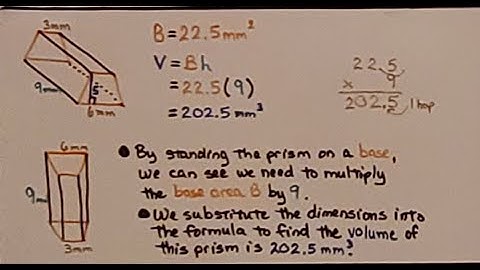 3mm
9mm
5
6mm
B = 22.5 mm²
V = Bh
= 22.5(9)
= 202.5 mm³
22.5
x 9
202.5 1 hop
6mm
9mm
3mm
• By standing the prism on a base,
we can see we need to multiply
the base area B by 9.
• We substitute the dimensions into
the formula to find the volume of
this prism is 202.5 mm³.